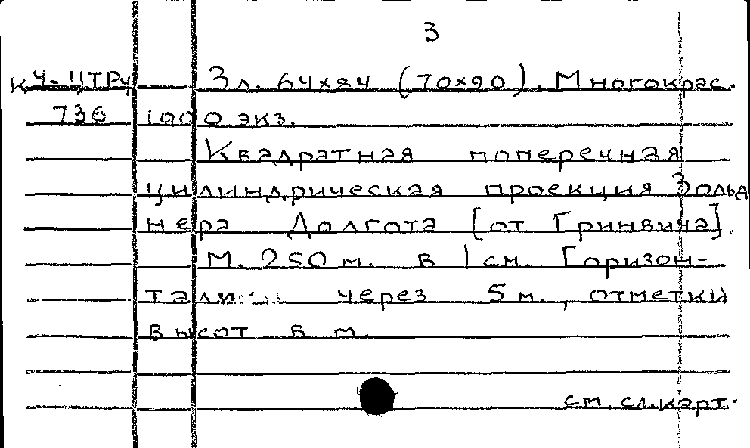 3
К 4-ЦТРч 3 л. 64х84 (70х90). Многокрас.
736 1000 экз.
Квадратная поперечная
цилиндрическая проекция Зольд
нера Долгота [от Гринвича].
М. 250 м. в 1 см. Горизон-
тали через 5 м., отметки
высот в м.
см. сл. карт.